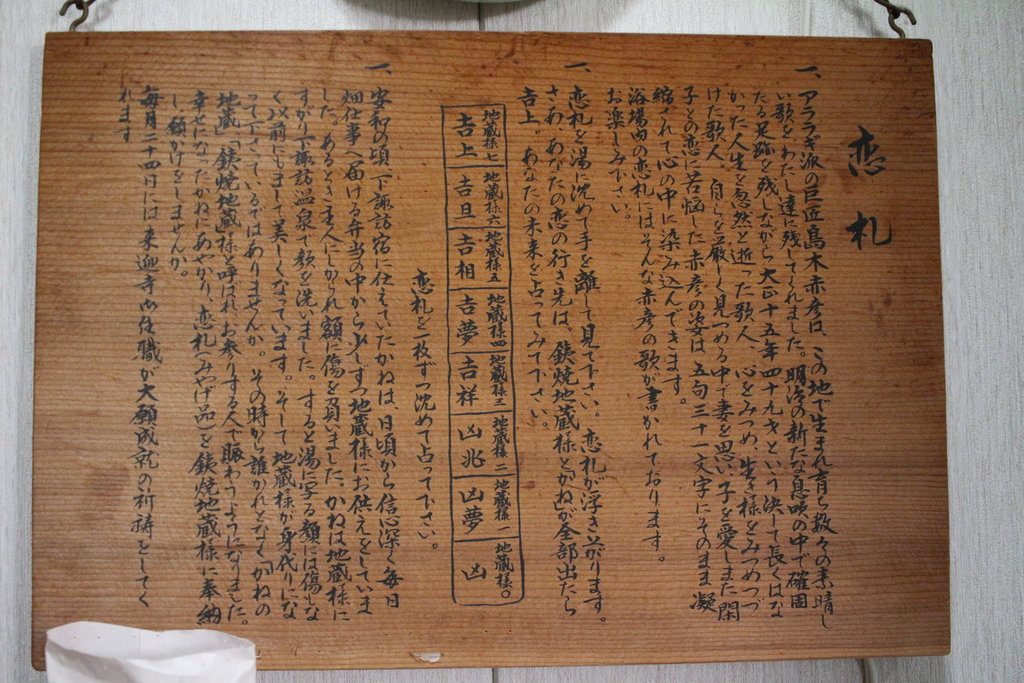 恋札
一、アララギ派の巨匠島木赤彦は、この地で生まれ育ち数々の素晴し
い歌をわたし達に残してくれました。明治の新たな息吹の中で確固
たる足跡を残しながら大正十五年四十九才という決して長くはな
かった人生を忽然と逝った歌人、心をみつめ、生き様をみつめつづ
けた歌人、自らを厳しく見つめる中で妻を思い子を愛しまた閑
子との恋に苦悩した赤彦の姿は五句三十一文字にそのまま凝
縮されて心の中に染み込んできます。
浴場内の恋札にはそんな赤彦の歌が書かれております。
お楽しみ下さい。
一、恋札を湯に沈めて手を離して見て下さい。恋札が浮き上がります。
さあ、あなたの恋の行き先は。銕焼地蔵様とかねが全部出たら
吉上。あなたの未来を占ってみて下さい。
地蔵様七 吉上
地蔵様六 吉旦
地蔵様五 吉相
地蔵様四 吉夢
地蔵様三 吉祥
地蔵様二 凶兆
地蔵様一 凶夢
地蔵様〇 凶
恋札を一枚ずつ沈めて占って下さい。
一、安和の頃、下諏訪宿に仕えていたかねは、日頃から信心深く毎日
畑仕事へ届ける弁当の中から少しずつ地蔵様にお供えをしていま
した。あるとき主人にしかられ額に傷を負いました。かねは地蔵様に
すがり下諏訪温泉で顔を洗いました。すると湯に写る顔には傷はな
く以前にもまして美しくなっています。そして地蔵様が身代りにな
って下さっているではありませんか。その時から誰かれとなく「かねの
地蔵」「銕焼地蔵」様と呼ばれお参りする人で賑わうようになりました。
幸せになったかねにあやかり、恋札（みやげ品）を銕焼地蔵様に奉納
し、願かけをしませんか。
毎月二十四日には来迎寺御住職が大願成就の祈祷をしてく
れます